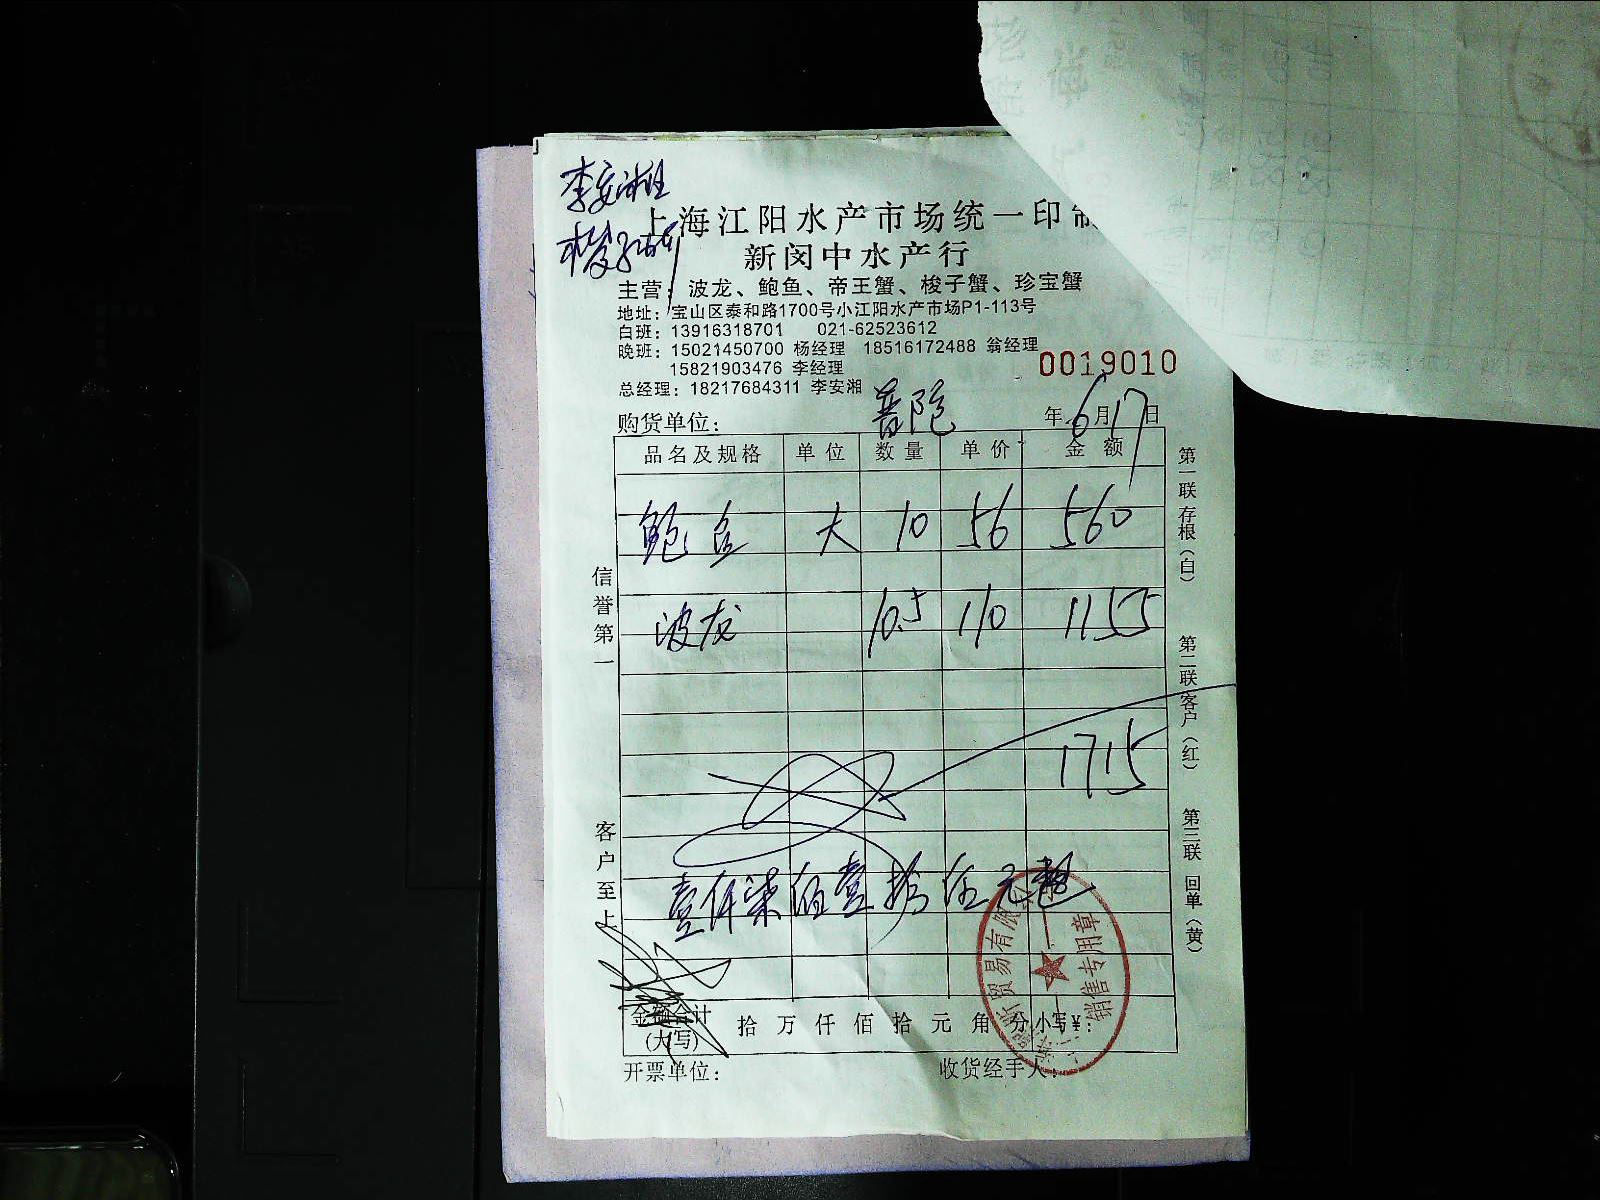 李安湘
上海江阳水产市场统一印制
新闵中水产行
主营：波龙、鲍鱼、帝王蟹、梭子蟹、珍宝蟹
地址：宝山区泰和路1700号小江阳水产市场P1-113号
白班：13916318701 021-62523612
晚班：15021450700 杨经理 18516172488 翁经理
15821903476 李经理
总经理：18217684311 李安湘
0019010
购货单位： 普陀 年 6月17日
品名及规格 单位 数量 单价 金额
鲍鱼 大 10 56 560
波龙 10.5 110 1155
1715
壹仟柒佰壹拾伍元
金额合计
(大写)
拾 万 仟 佰 拾 元 角 分 小写¥：
开票单位： 收货经手人：
信誉第一
客户至上
第一联 存根（白）
第二联 客户（红）
第三联 回单（黄）
贸易有限
销售专用章